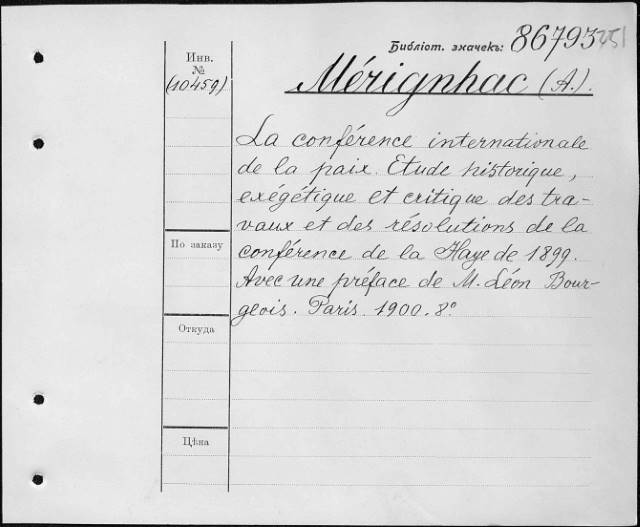 Библіот. значекъ: 86793
Инв.
№
(10459)
Mérignhac (A.).
La conférence internationale
de la paix. Etude historique,
exégétique et critique des tra-
vaux et des résolutions de la
conférence de la Haye de 1899.
Avec une préface de M. Léon Bour-
geois. Paris. 1900. 8º
По заказу
Откуда
Цѣна